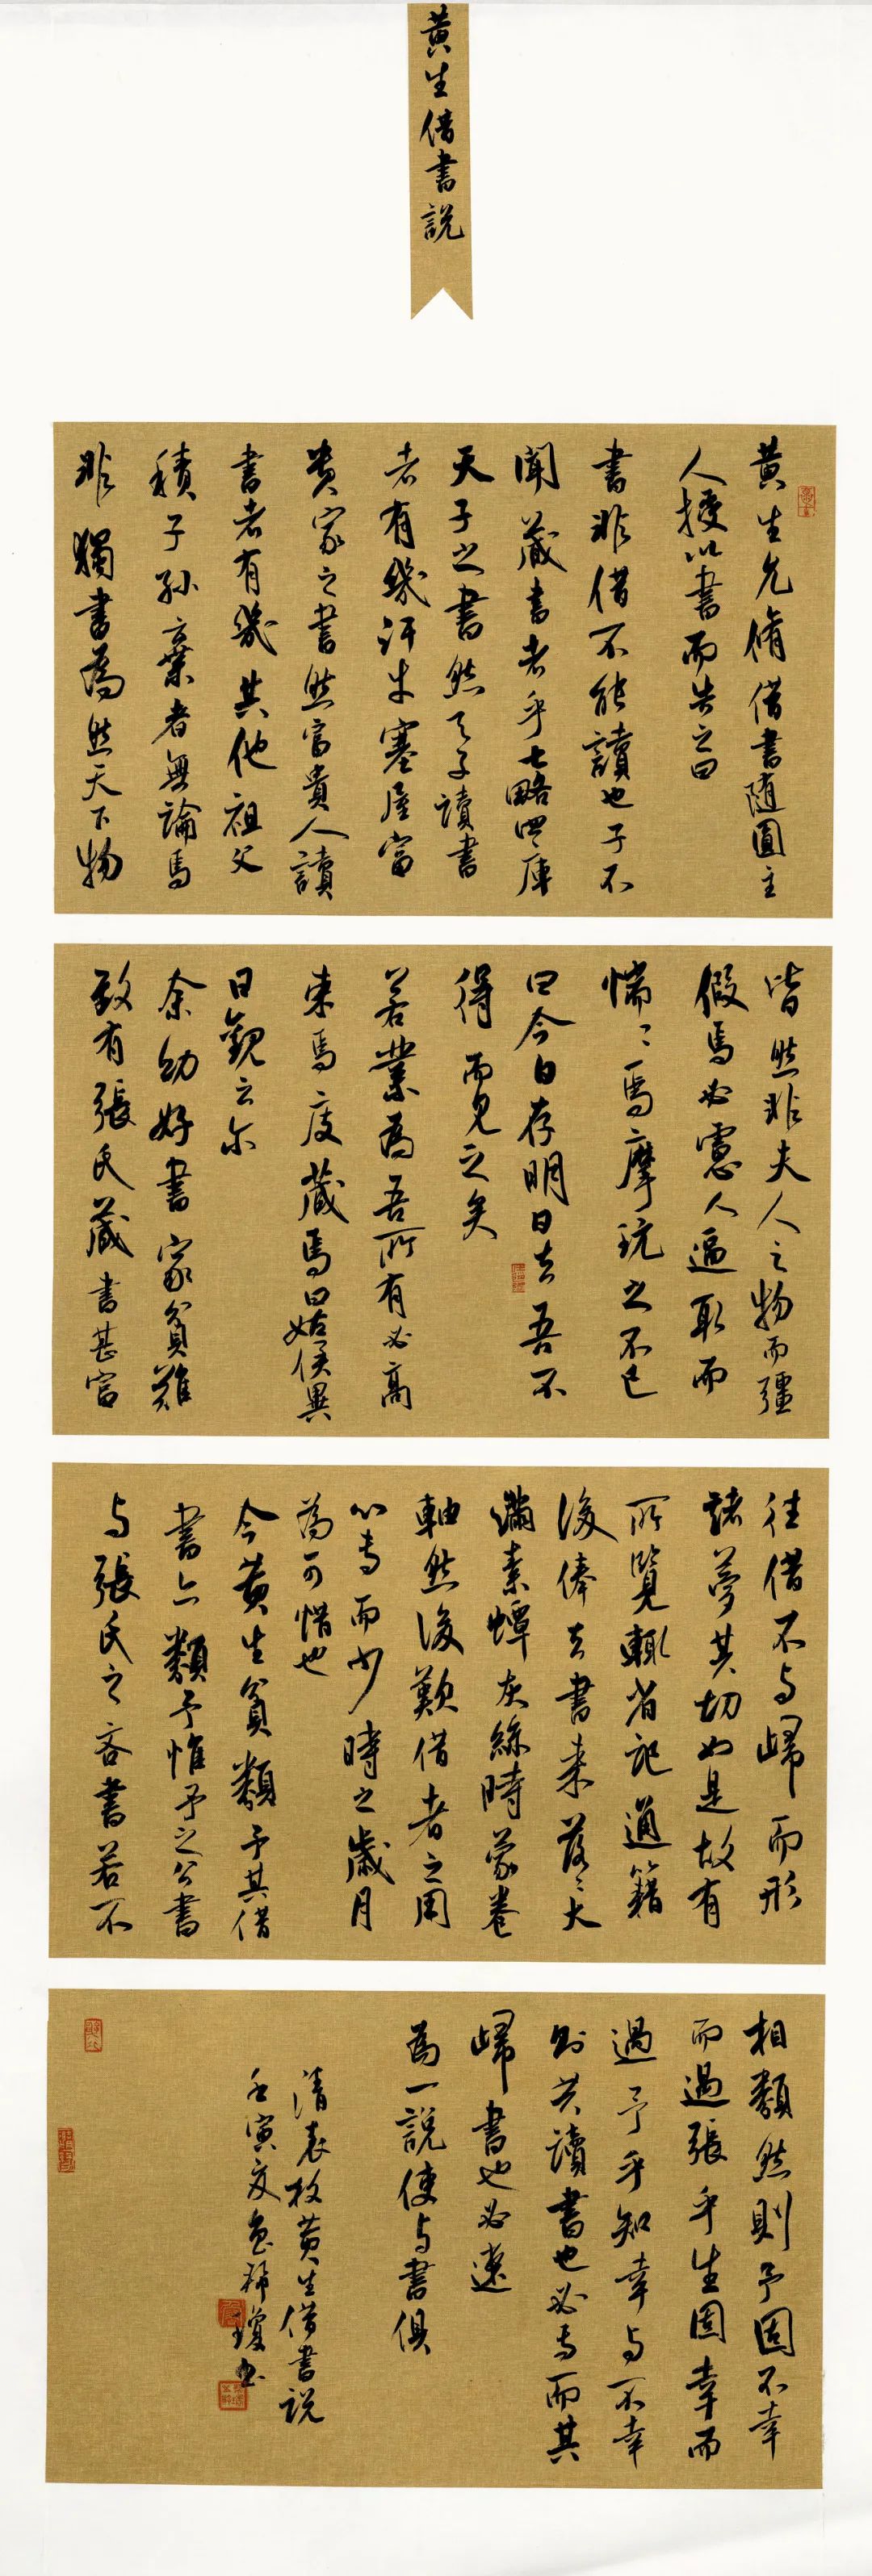 黄生借書説
黄生允脩借書随園主
人授以書而告之曰
書非借不能讀也子不
聞藏書者乎七略四庫
天子之書然天子讀書
者有幾汗牛塞屋富
貴家之書然富貴人讀
書者有幾其他祖父
積子孫棄者無論焉
非獨書為然天下物
皆然非夫人之物而彊
假焉必慮人逼取而
惴〻焉摩玩之不已
曰今日存明日去吾不
得而見之矣
若業為吾所有必高
束焉庋藏焉曰姑俟異
日觀云尔
余幼好書家貧難
致有張氏藏書甚富
往借不与歸而形
諸夢其切如是故有
所覽輒省記通籍
後俸去書来落〻大
滿素蟫灰絲時蒙卷
軸然後歎借者之用
心専而少時之歲月
為可惜也
今黄生貧類予其借
書亦類予惟予之公書
与張氏之吝書若不
相類然則予固不幸
而遇張乎生固幸而
遇予乎知幸与不幸
則其讀書也必専而其
歸書也必速
為一説使与書俱
清袁枚黄生借書説
壬寅夏
瓊書